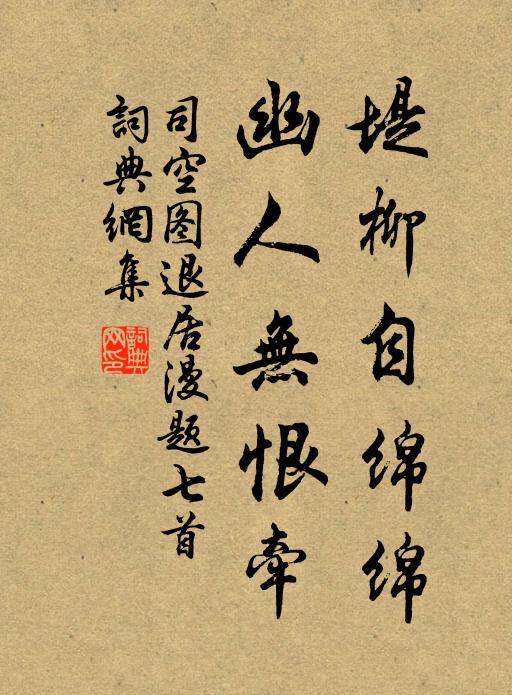 堤柳自绵绵
幽人無恨牽
司空图退居漫题七首
詞典網集
詞典网印